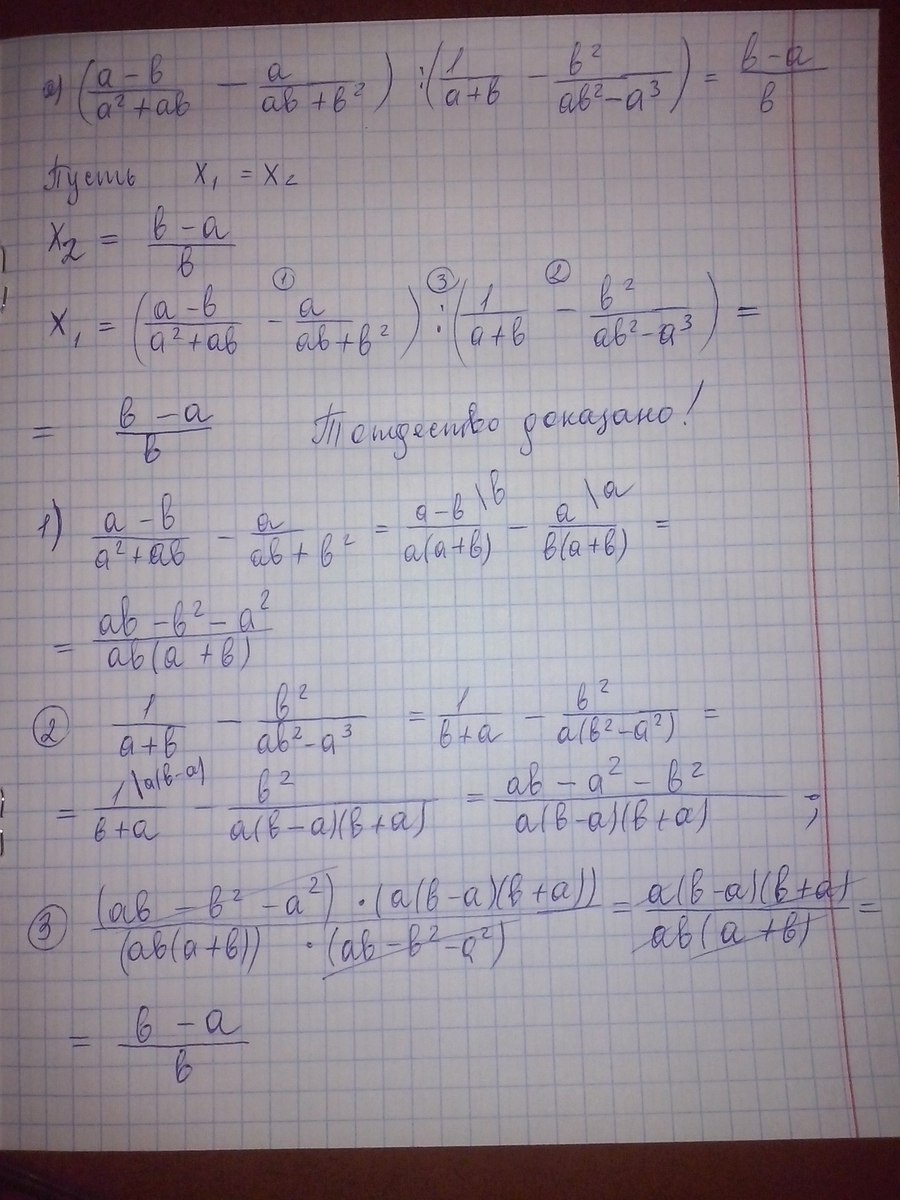 а) ((a-b)/(a²+ab) - a/(ab+b²)) : (1/(a+b) - b²/(ab²-a³)) = (b-a)/b
Пусть x₁ = x₂
x₂ = (b-a)/b
x₁ = ((a-b)/(a²+ab) -① a/(ab+b²)) :③ (1/(a+b) -② b²/(ab²-a³)) =
= (b-a)/b Тождество доказано!
1) (a-b)/(a²+ab) - a/(ab+b²) = (a-b\b)/(a(a+b)) - (a\a)/(b(a+b)) =
= (ab-b²-a²)/(ab(a+b))
② 1/(a+b) - b²/(ab²-a³) = 1/(b+a) - b²/(a(b²-a²)) =
= (1\a(b-a))/(b+a) - b²/(a(b-a)(b+a)) = (ab-a²-b²)/(a(b-a)(b+a)) ;
③ ((ab-b²-a²)·(a(b-a)(b+a)))/((ab(a+b))·(ab-b²-a²)) = (a(b-a)(b+a))/(ab(a+b)) =
= (b-a)/b